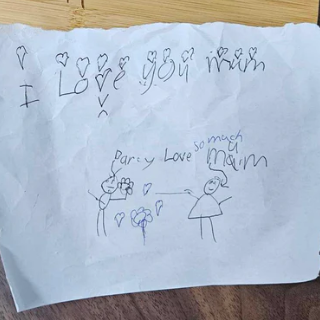 I Love you mum
so much
Darcy Love mum